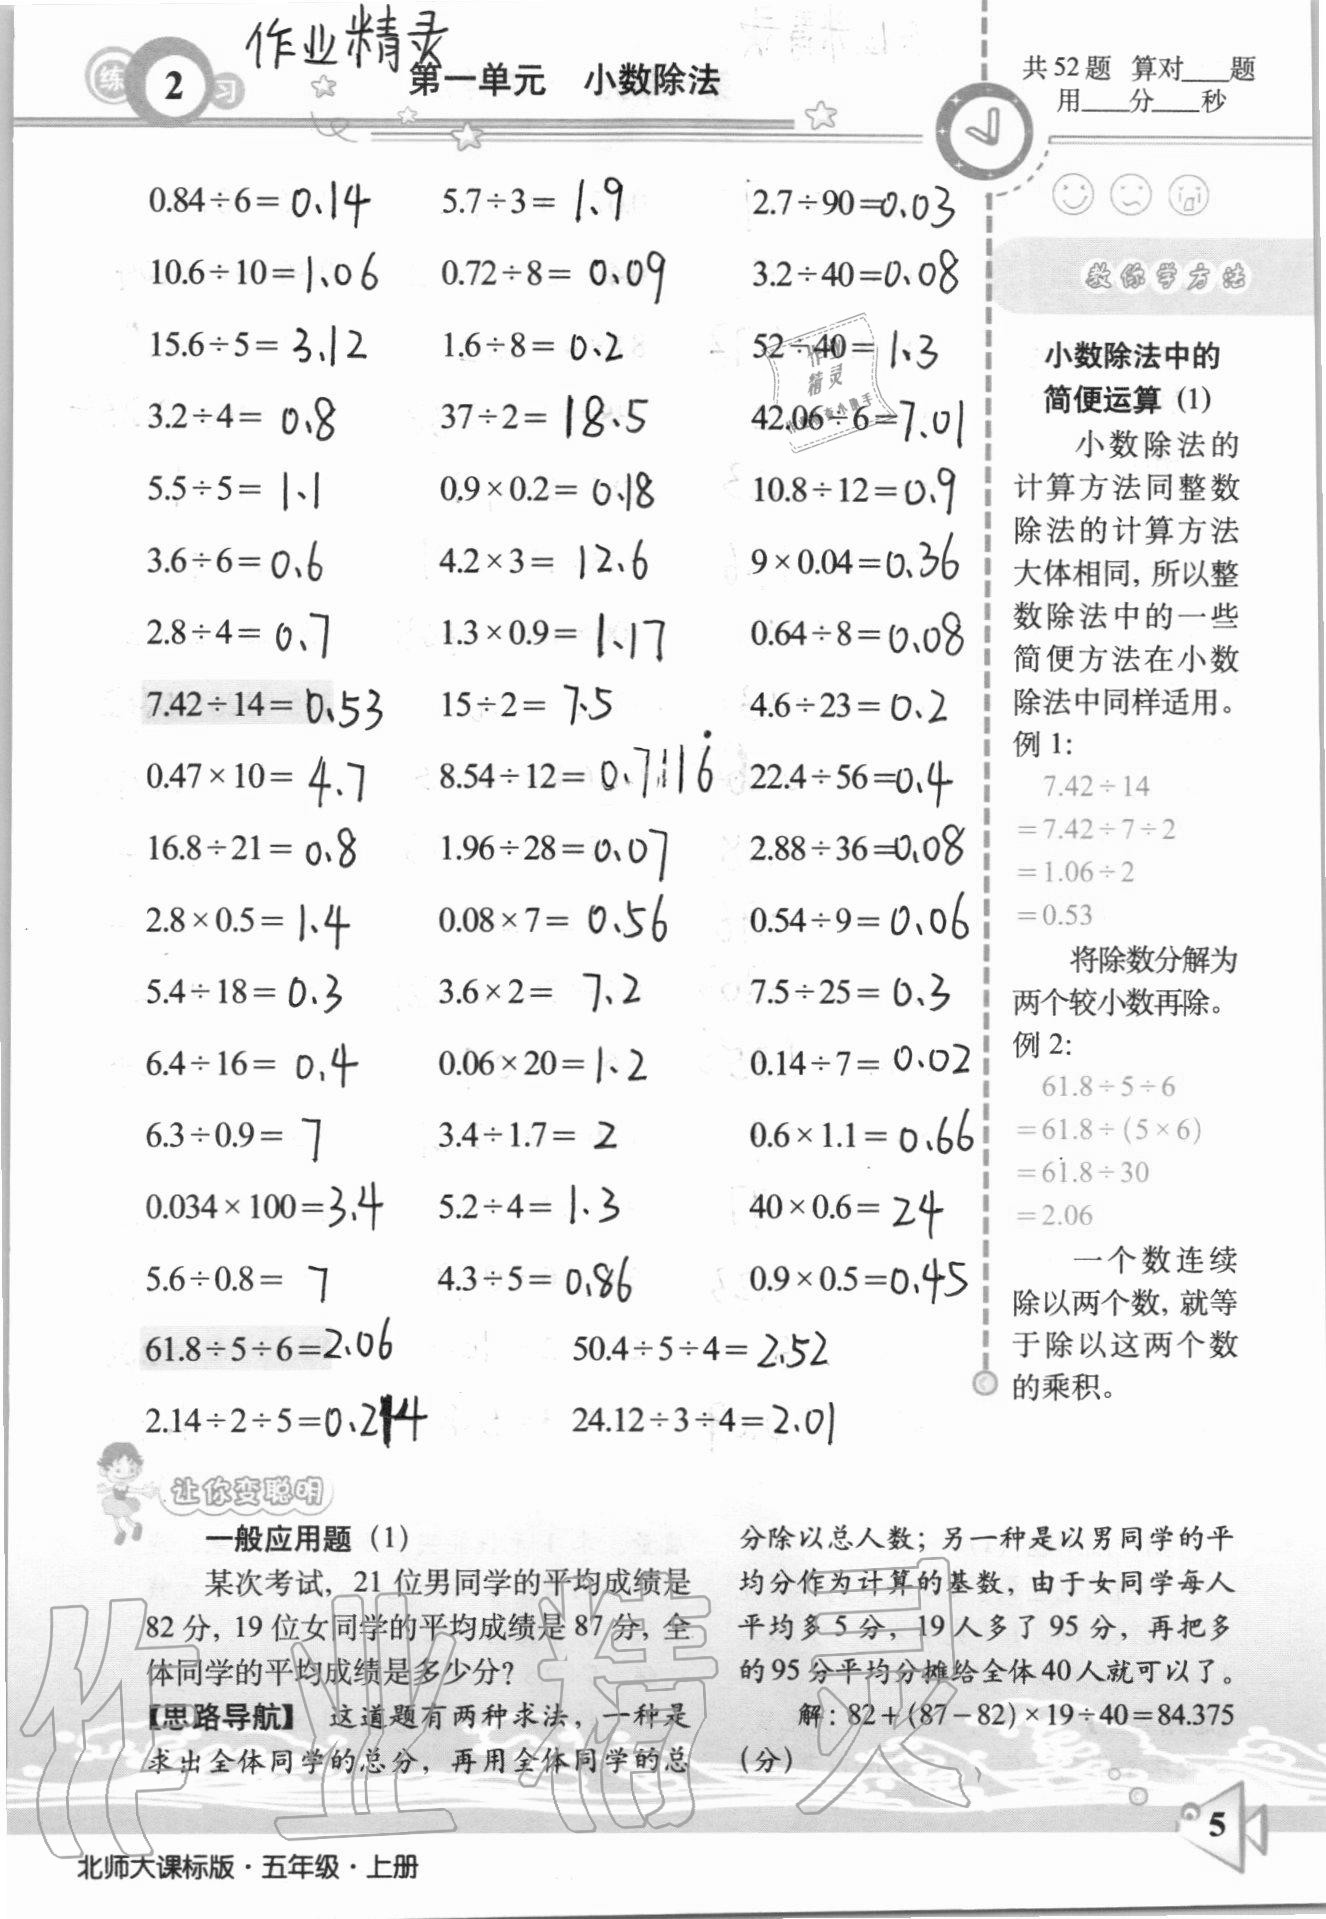 作业精灵
练 2 习
第一单元 小数除法
共52题 算对____题
用____分____秒
0.84÷6=0.14 5.7÷3=1.9 2.7÷90=0.03
10.6÷10=1.06 0.72÷8=0.09 3.2÷40=0.08
15.6÷5=3.12 1.6÷8=0.2 52÷40=1.3
3.2÷4=0.8 37÷2=18.5 42.06÷6=7.01
5.5÷5=1.1 0.9×0.2=0.18 10.8÷12=0.9
3.6÷6=0.6 4.2×3=12.6 9×0.04=0.36
2.8÷4=0.7 1.3×0.9=1.17 0.64÷8=0.08
7.42÷14=0.53 15÷2=7.5 4.6÷23=0.2
0.47×10=4.7 8.54÷12=0.7116̇ 22.4÷56=0.4
16.8÷21=0.8 1.96÷28=0.07 2.88÷36=0.08
2.8×0.5=1.4 0.08×7=0.56 0.54÷9=0.06
5.4÷18=0.3 3.6×2=7.2 7.5÷25=0.3
6.4÷16=0.4 0.06×20=1.2 0.14÷7=0.02
6.3÷0.9=7 3.4÷1.7=2 0.6×1.1=0.66
0.034×100=3.4 5.2÷4=1.3 40×0.6=24
5.6÷0.8=7 4.3÷5=0.86 0.9×0.5=0.45
61.8÷5÷6=2.06 50.4÷5÷4=2.52
2.14÷2÷5=0.214 24.12÷3÷4=2.01
作业
精灵
教你学方法
小数除法中的
简便运算（1）
小数除法的
计算方法同整数
除法的计算方法
大体相同，所以整
数除法中的一些
简便方法在小数
除法中同样适用。
例1：
7.42÷14
=7.42÷7÷2
=1.06÷2
=0.53
将除数分解为
两个较小数再除。
例2：
61.8÷5÷6
=61.8÷(5×6)
=61.8÷30
=2.06
一个数连续
除以两个数，就等
于除以这两个数
的乘积。
让你变聪明
一般应用题（1）
某次考试，21位男同学的平均成绩是
82分，19位女同学的平均成绩是87分，全
体同学的平均成绩是多少分？
【思路导航】 这道题有两种求法，一种是
求出全体同学的总分，再用全体同学的总
分除以总人数；另一种是以男同学的平
均分作为计算的基数，由于女同学每人
平均多5分，19人多了95分，再把多
的95分平均分摊给全体40人就可以了。
解：82+(87-82)×19÷40=84.375
（分）
作业精灵
5
北师大课标版·五年级·上册